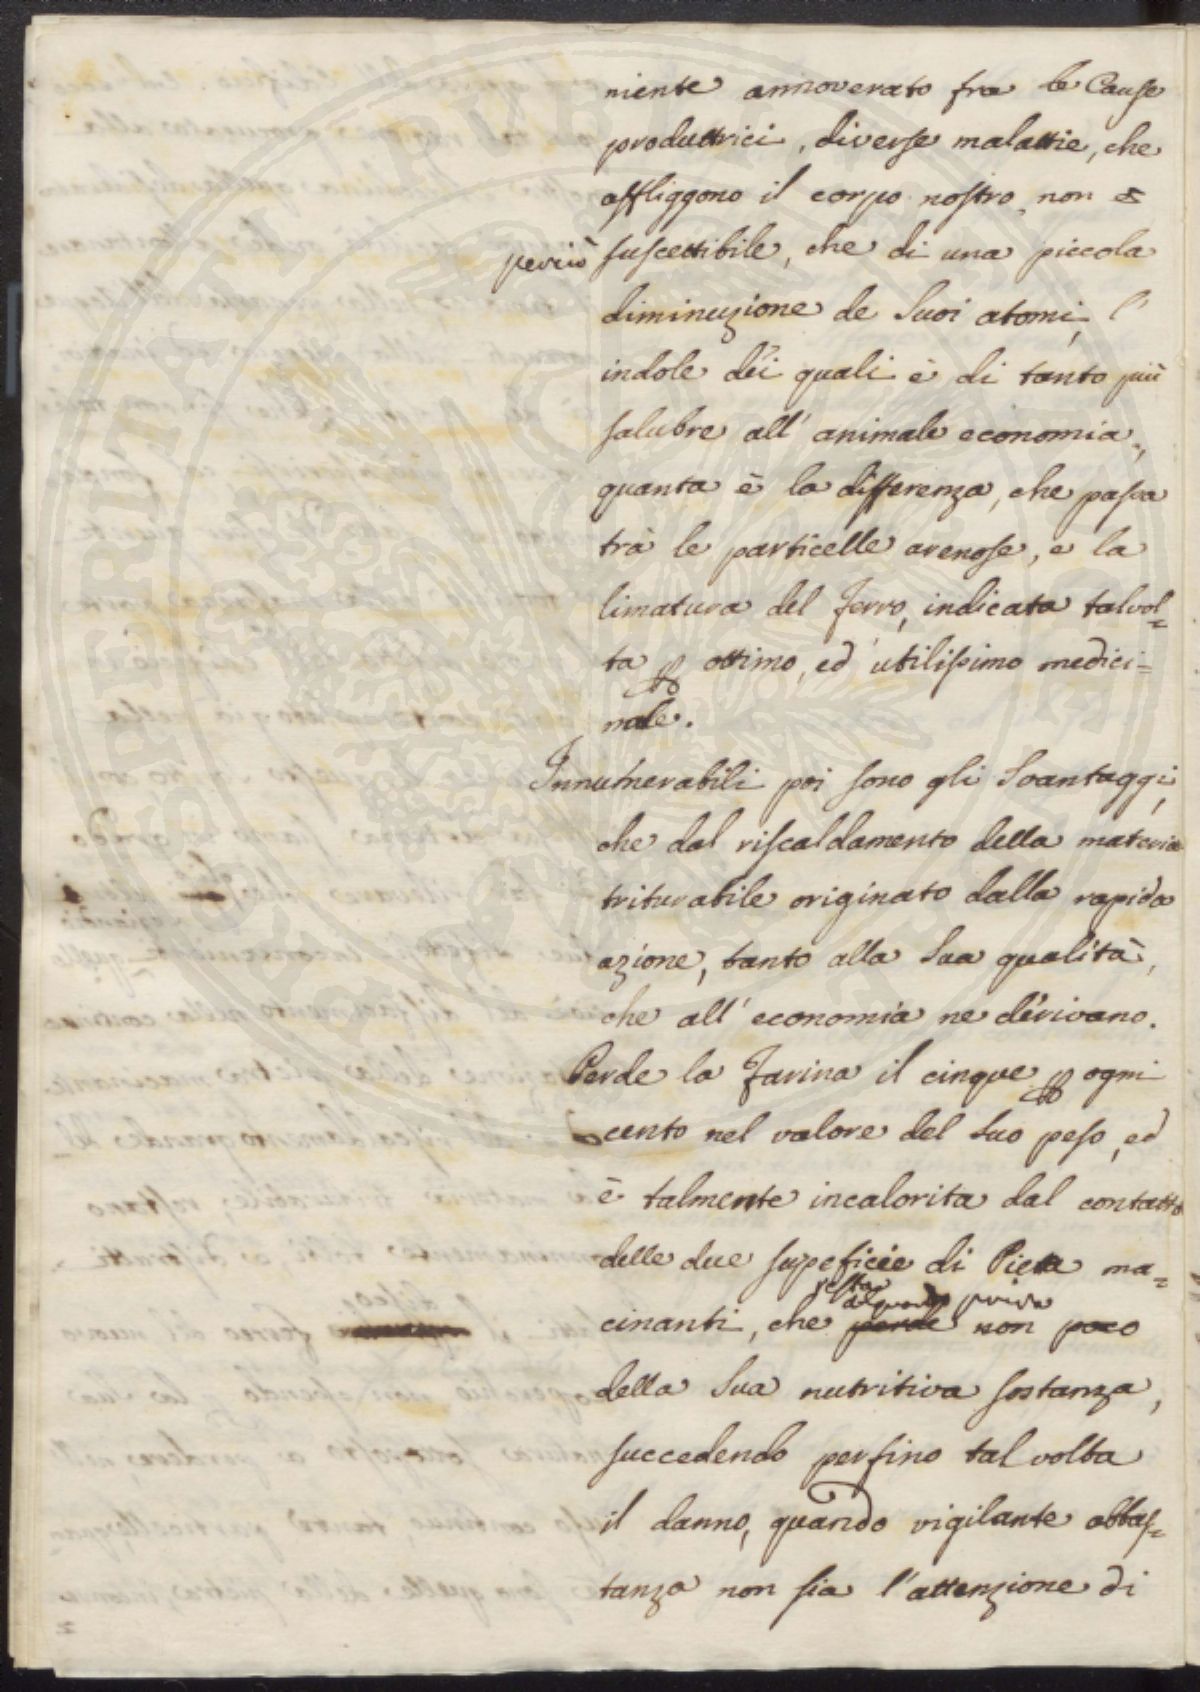 niente annoverato fra le Cause
produttrici, diverse malattie, che
affliggono il corpo nostro, non è
perciò suscettibile, che di una piccola
diminuzione de suoi atomi, l'
indole dei quali è di tanto più
salubre all' animale economia,
quanta è la differenza, che passa
trà le particelle arenose, e la
limatura del ferro, indicata talvol=
ta per ottimo, ed utilissimo medici=
nale.
Innumerabili poi sono gli Svantaggi,
che dal riscaldamento della materia
triturabile originato dalla rapida
azione, tanto alla sua qualità,
che all' economia ne derivano.
Perde la Farina il cinque per ogni
cento nel valore del suo peso, ed
è talmente incalorita dal contatto
delle due supeficie di Pietra ma=
resta alquanto priva
cinanti, che perde non poco
della sua nutritiva sostanza,
succedendo perfino tal volta
il danno, quando vigilante abbas=
tanza non sia l'attenzione di